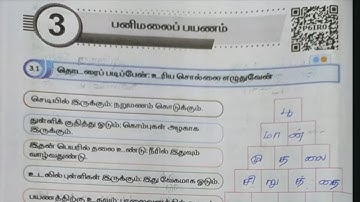 3
பனிமலைப் பயணம்
PG1RG
3.1 தொடரைப் படிப்பேன்; உரிய சொல்லை எழுதுவேன்
செடியில் இருக்கும்; நறுமணம் கொடுக்கும்.
பூ
துள்ளிக் குதித்து ஓடும்; கொம்புகள் அழகாக
இருக்கும்.
மா ன்
இதன் பெயரில் தலை உண்டு; நீரில் இதுவும்
வாழ்வதுண்டு.
மு த லை
உடலில் புள்ளிகள் இருக்கும்; இது வேகமாக ஓடும்.
சி று த் தை
பயணத்திற்கு உதவும்;